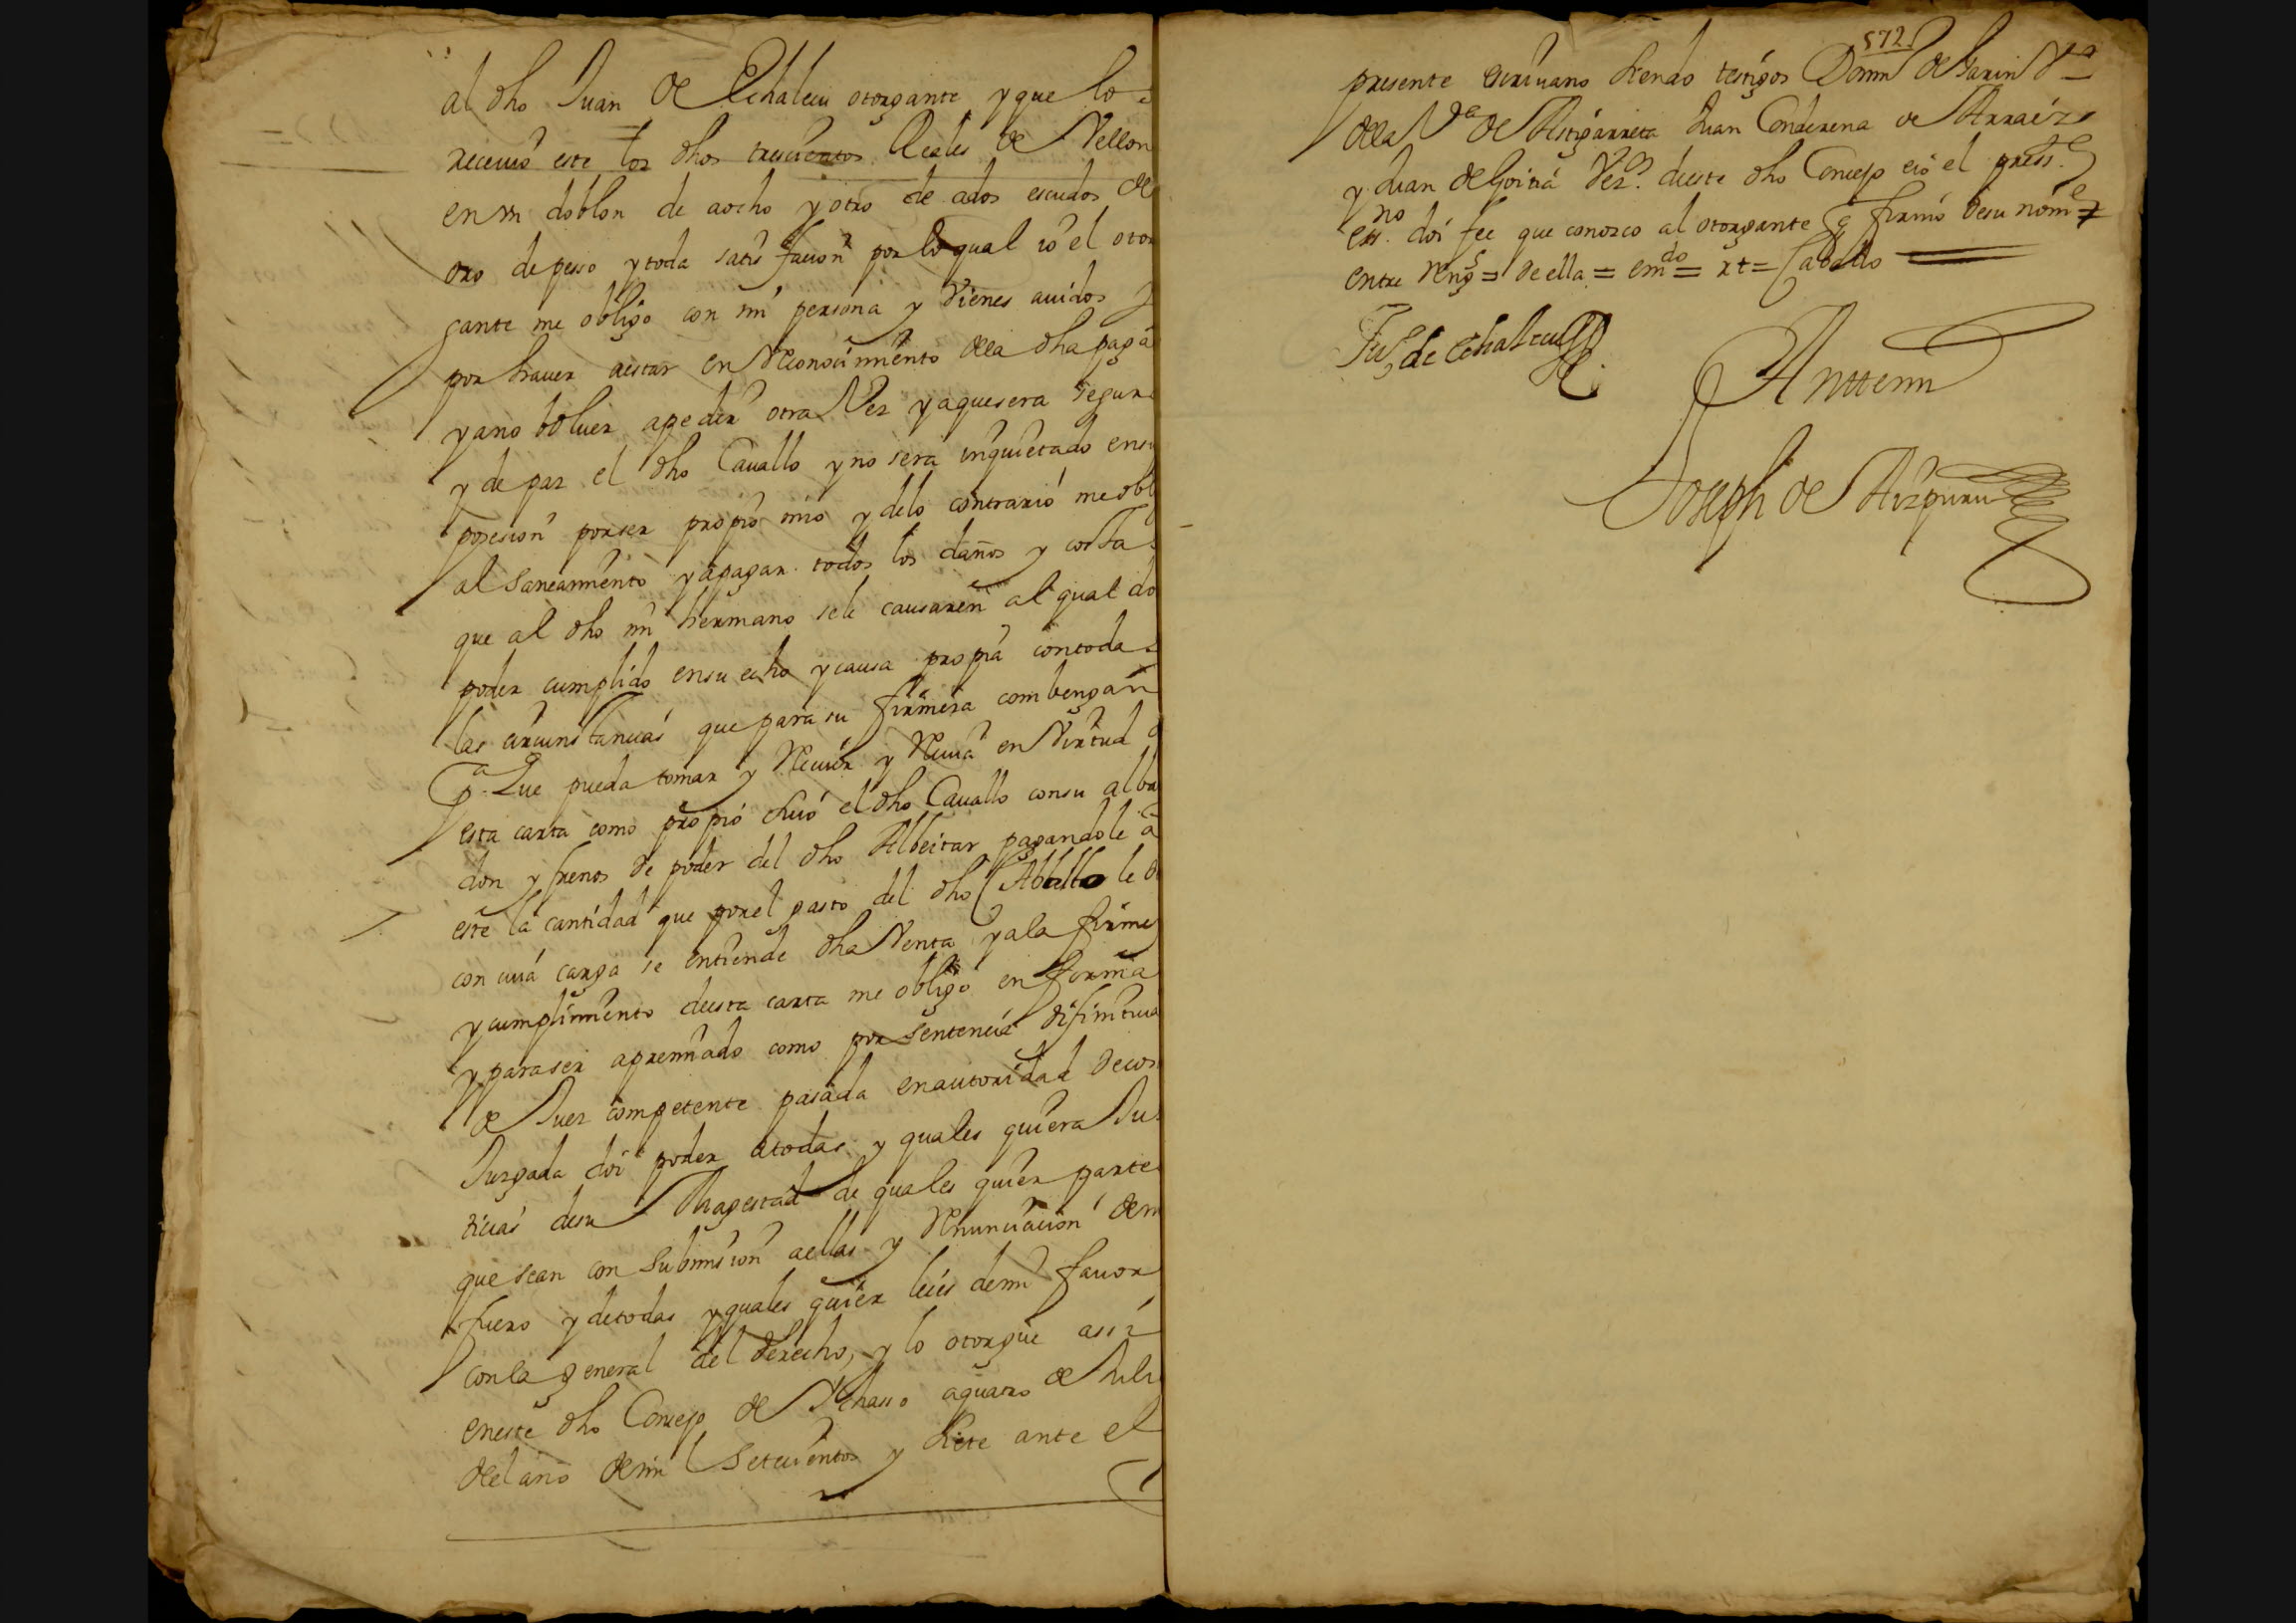 al dho Juan de Echalecu otorgante y que lo
recevio este los dhos trescientos Reales de Vellon
en un doblon de aocho y otro de ados escudos de
oro de pesso y toda satisfacion por lo qual io el otor
gante me obligo con mi persona y vienes auidos y
por hauer aestar en Reconocimiento dela dha paga
yano boluer apedir otra Vez yaquesera segur
y de paz el dho Cauallo y no sera inquietado ensu
posesion porser propio mio y delo contrario me obl
al saneamiento yapagar todos los daños y costas
que al dho mi hermano sele causaren al qual do
poder cumplido ensu echo ycausa propia contodas
las circunstancias que para su firmesa combengan
Pa. Que pueda tomar y Reciuir y Reciua en Virtud d
esta carta como propio suio el dho Cauallo consu alba
don y frenos de poder del dho Albeitar pagandole a
este la cantidad que porel gasto del dho Caballo le d
con cuia carga se entiende dha Venta yala firme
ycumplimiento deesta carta me obligo en forma
yparaser apremiado como por sentencia difinitiua
de Juez competente pasada enautoridad decos
Juzgada doi poder atodas y quales quiera Jus
ticias desu Magestad de quales quier partes
que sean con Submision aellas y Renunciacion dem
fuero y detodas yquales quier leies demi fauor
conla general del derecho, y lo otorgue assi
eneste dho Consejo de Ichasso aquatro de Juli
del año demil Setecientos y siete ante el
572
presente escriuano siendo testigos Domin de Garin Va
dela Va de Astigarreta Juan Conderena de Arraiz
y Juan de Goitia Vezos deeste dho Concejo eio el press.e
essno doi fee que conozco al otorgante q firmo desu nome
entre rengs = de ella = emdo = xt = Caballo
Jun de Echalecu
Anttemi
Joseph de Aizpuru